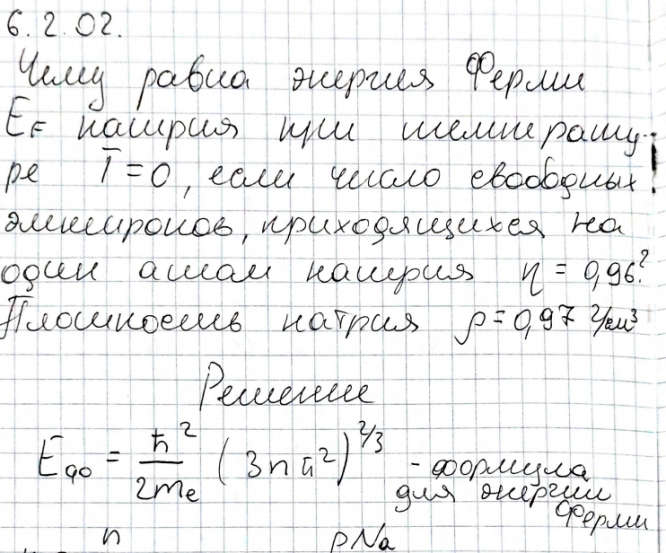 6.2.02.
Чему равна энергия Ферми
E_F натрия при температу-
ре T=0, если число свободных
электронов, приходящихся на
один атом натрия η = 0,96?
Плотность натрия ρ=0,97 г/см³
Решение
E_фо = ħ²/2mₑ (3nπ²)^{2/3} - формула
для энергии
Ферми
n ρNa